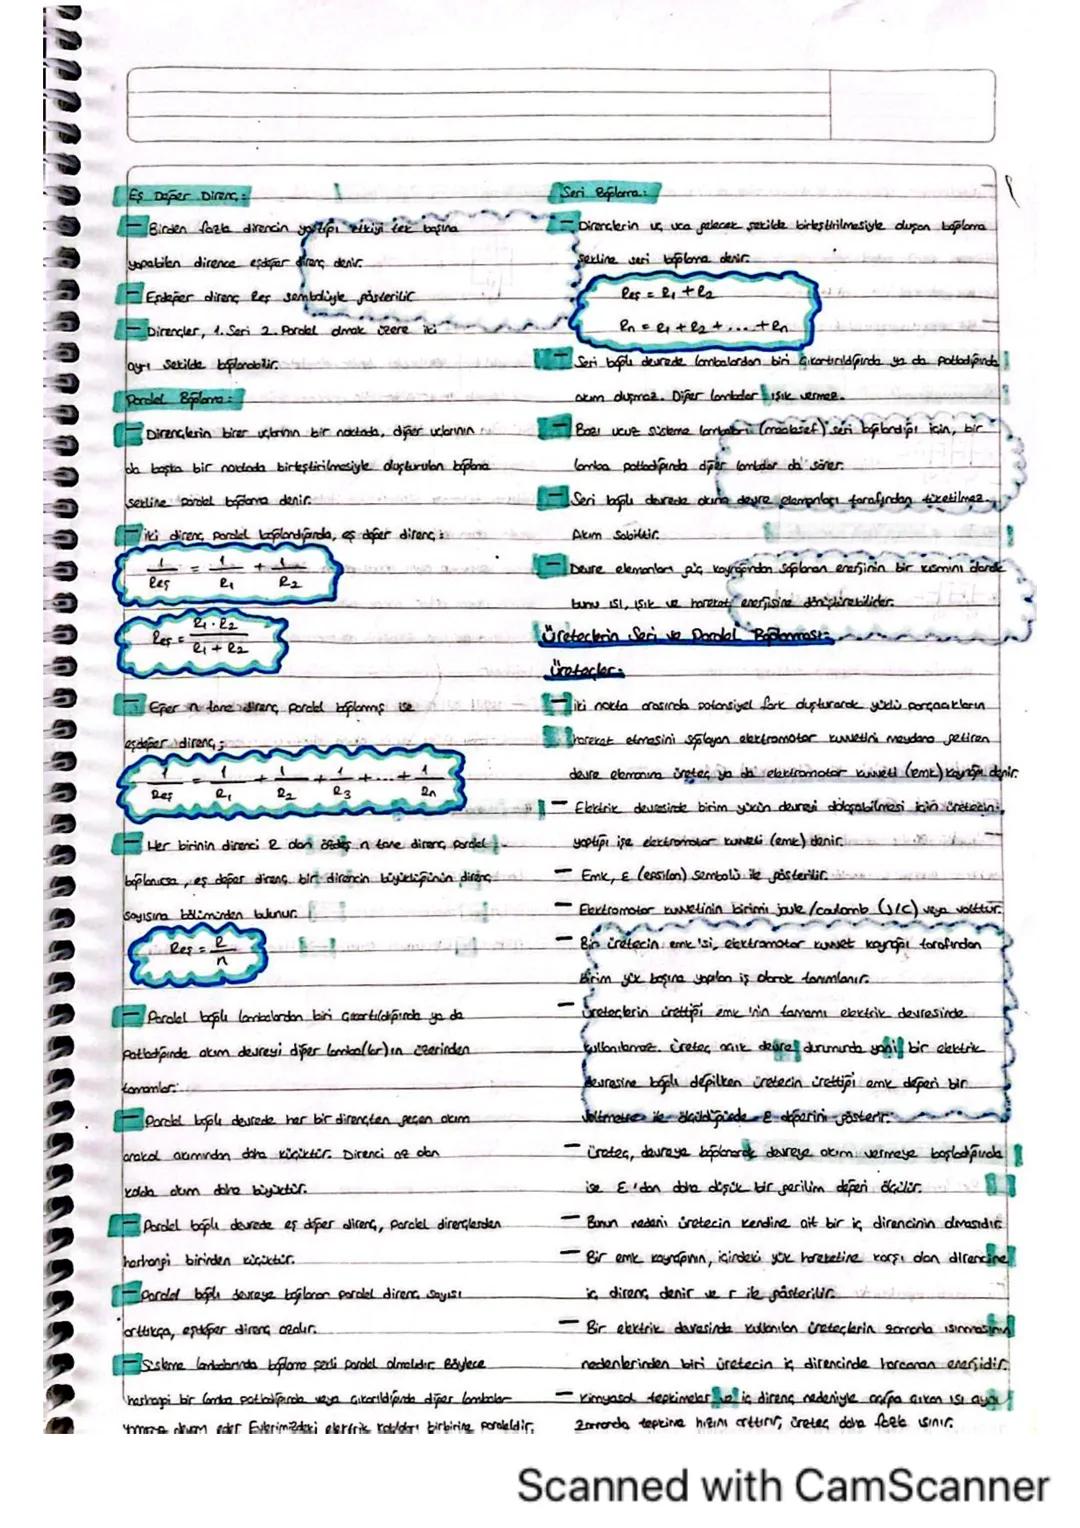 Eş Değer Direnç:
- Birden fazla direncin yaptığı etkiyi tek başına
yapabilen dirence eşdeğer direnç denir.
- Eşdeğer direnç Reş sembolüyle gösterilir
- Dirençler, 1. Seri 2. Paralel olmak üzere iki
ayrı şekilde bağlanabilir.
Paralel Bağlama:
- Dirençlerin birer uçlarının bir noktada, diğer uclarının
da başka bir noktada birleştirilmesiyle oluşturulan bağlama
şekline paralel bağlama denir.
- iki direnç paralel bağlandığında, eş değer direnç:
1/Reş = 1/R1 + 1/R2
Reş = R1 . R2 / R1 + R2
- Eğer n tane direnç paralel bağlanmış ise
eşdeğer direnç;
1/Reş = 1/R1 + 1/R2 + 1/R3 + ... + 1/Rn
- Her birinin direnci R olan özdeş n tane direnç paralel
bağlanırsa, eş değer direnç bir direncin büyüklüğünün direnç
sayısına bölümünden bulunur.
Reş = R/n
- Paralel bağlı lambalardan biri çıkartıldığında ya da
patladığında akım devreyi diğer lamba(lar)ın üzerinden
tamamlar.
- Paralel bağlı devrede her bir dirençten geçen akım
anakol akımından daha küçüktür. Direnci az olan
kolda akım daha büyüktür.
- Paralel bağlı devrede eş değer direnç, paralel dirençlerden
herhangi birinden küçüktür.
- Paralel bağlı devreye bağlanan paralel direnç sayısı
arttıkça, eşdeğer direnç azalır.
- Süsleme lambalarında bağlama şekli paralel olmalıdır. Böylece
herhangi bir lamba patladığında veya çıkarıldığında diğer lambalar
yanmaya devam eder Evlerimizdeki elektrik kabloları birbirine paraleldir.
Seri Bağlama:
- Dirençlerin uç uca gelecek şekilde birleştirilmesiyle oluşan bağlama
şekline seri bağlama denir.
Reş = R1 + R2
Rn = R1 + R2 + ... + Rn
- Seri bağlı devrede lambalardan biri çıkartırıldığında ya da patladığında
akım oluşmaz. Diğer lambalar ışık vermez.
- Bazı ucuz süsleme lambaları (maalesef) seri bağlandığı için, bir
lamba patladığında diğer lambalar da söner.
- Seri bağlı devrede akım devre elemanları tarafından tüketilmez.
Akım sabittir.
- Devre elemanları güç kaynağından sağlanan enerjinin bir kısmını alarak
bunu ısı, ışık ve hareket enerjisine dönüştürebilirler.
Üreteçlerin Seri ve Paralel Bağlanması:
Üreteçler:
- iki nokta arasında potansiyel fark oluşturarak yüklü parçacıkların
hareket etmesini sağlayan elektromotor kuvvetini meydana getiren
devre elemanına üreteç ya da elektromotor kuvveti (emk) kaynağı denir.
- Elektrik devresinde birim yükün devreyi dolaşabilmesi için üretecin
yaptığı işe elektromotor kuvveti (emk) denir.
- Emk, ε (epsilon) sembolü ile gösterilir.
- Elektromotor kuvvetinin birimi joule/coulomb (J/C) veya volttur.
- Bir üretecin emk'si, elektromotor kuvvet kaynağı tarafından
birim yük başına yapılan iş olarak tanımlanır.
- Üreteçlerin ürettiği emk'nin tamamı elektrik devresinde
kullanılamaz. Üreteç açık devre durumunda yani bir elektrik
devresine bağlı değilken üretecin ürettiği emk değeri bir
voltmetre ile ölçüldüğünde ε değerini gösterir.
- Üreteç, devreye bağlanarak devreye akım vermeye başladığında
ise ε'dan daha düşük bir gerilim değeri ölçülür.
- Bunun nedeni üretecin kendine ait bir iç direncinin olmasıdır.
- Bir emk kaynağının, içindeki yük hareketine karşı olan direncine
iç direnç denir ve r ile gösterilir.
- Bir elektrik devresinde kullanılan üreteçlerin zamanla ısınmasının
nedenlerinden biri üretecin iç direncinde harcanan enerjidir.
- Kimyasal tepkimeler ve iç direnç nedeniyle açığa çıkan ısı aynı
zamanda tepkime hızını arttırır, üreteç daha fazla ısınır.
Scanned with CamScanner